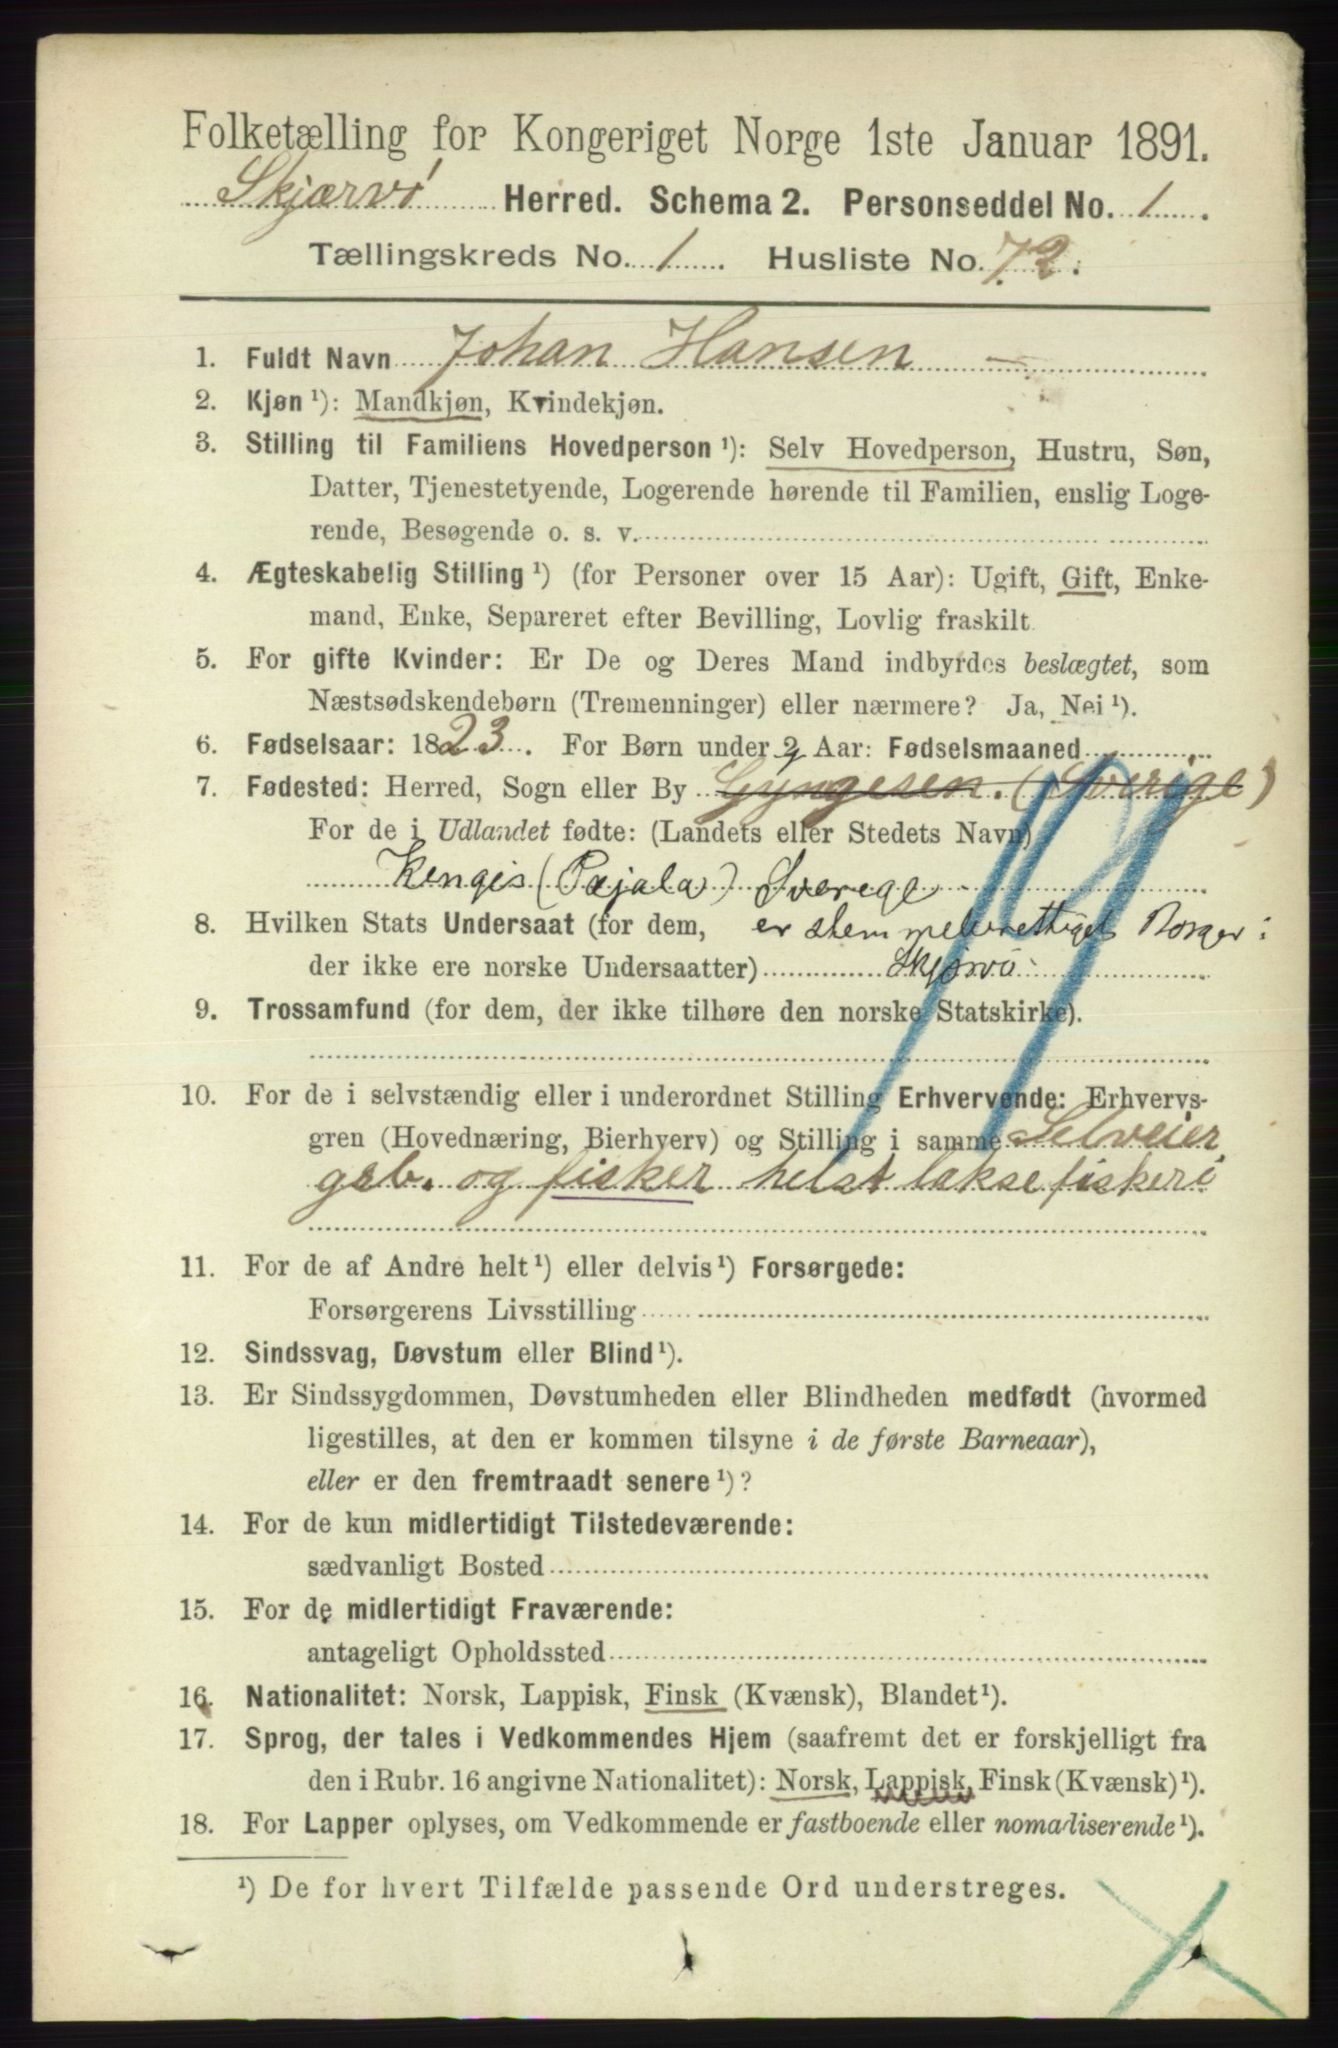 Folketælling for Kongeriget Norge 1ste Januar 1891.
Skjærvö Herred. Schema 2. Personseddel No. 1.
Tællingskreds No. 1 Husliste No. 72.
1. Fuldt Navn Johan Hansen
2. Kjøn ¹): Mandkjøn, Kvindekjøn.
3. Stilling til Familiens Hovedperson ¹): Selv Hovedperson, Hustru, Søn,
Datter, Tjenestetyende, Logerende hørende til Familien, enslig Loge-
rende, Besøgende o. s. v.
4. Ægteskabelig Stilling ¹) (for Personer over 15 Aar): Ugift, Gift, Enke-
mand, Enke, Separeret efter Bevilling, Lovlig fraskilt
5. For gifte Kvinder: Er De og Deres Mand indbyrdes beslægtet, som
Næstsødskendebørn (Tremenninger) eller nærmere? Ja, Nei ¹).
6. Fødselsaar: 1823. For Børn under 2 Aar: Fødselsmaaned
7. Fødested: Herred, Sogn eller By Gyngesen. (Sverige)
For de i Udlandet fødte: (Landets eller Stedets Navn)
Kengis (Pajala) Sverege
8. Hvilken Stats Undersaat (for dem, er stemmeberettiget Borger i
der ikke ere norske Undersaatter) Skjervö
9. Trossamfund (for dem, der ikke tilhøre den norske Statskirke).
10. For de i selvstændig eller i underordnet Stilling Erhvervende: Erhvervs-
gren (Hovednæring, Bierhverv) og Stilling i samme Selveier
grb. og fisker helst laksefiskeri
11. For de af Andre helt ¹) eller delvis ¹) Forsørgede:
Forsørgerens Livsstilling
12. Sindssvag, Døvstum eller Blind ¹).
13. Er Sindssygdommen, Døvstumheden eller Blindheden medfødt (hvormed
ligestilles, at den er kommen tilsyne i de første Barneaar),
eller er den fremtraadt senere ¹)?
14. For de kun midlertidigt Tilstedeværende:
sædvanligt Bosted
15. For de midlertidigt Fraværende:
antageligt Opholdssted
16. Nationalitet: Norsk, Lappisk, Finsk (Kvænsk), Blandet ¹).
17. Sprog, der tales i Vedkommendes Hjem (saafremt det er forskjelligt fra
den i Rubr. 16 angivne Nationalitet): Norsk, Lappisk, Finsk (Kvænsk) ¹).
18. For Lapper oplyses, om Vedkommende er fastboende eller nomadiserende ¹).
¹) De for hvert Tilfælde passende Ord understreges.